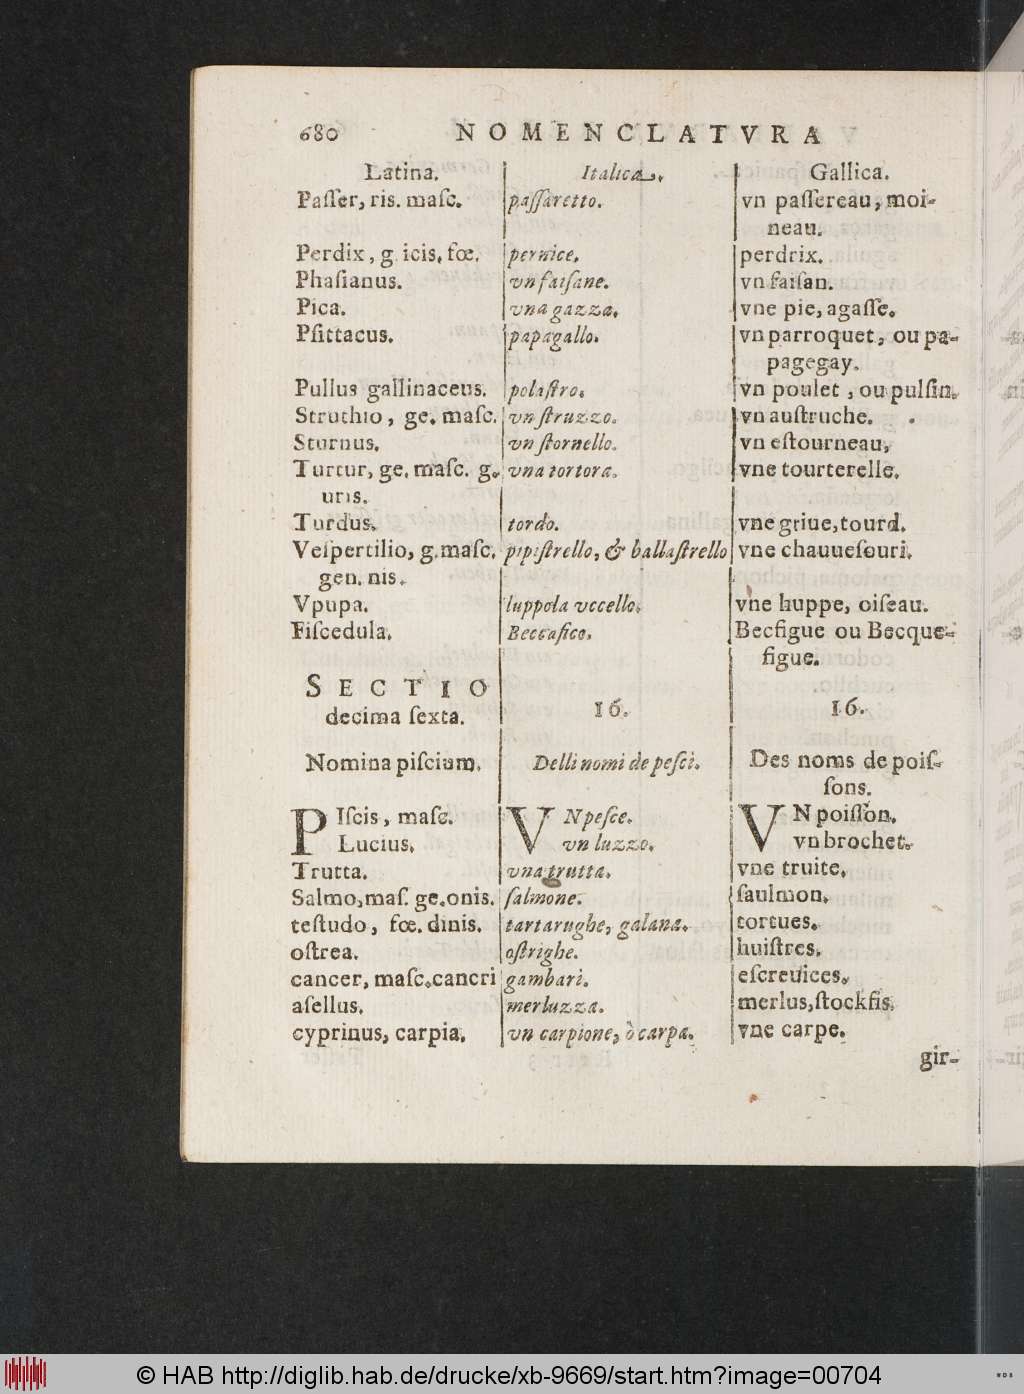 680 NOMENCLATVRA
Latina. Italica. Gallica.
Paſſer, ris. maſc. paſſaretto. vn paſſereau, moi-
neau.
Perdix, g. icis. fœ. pernice. perdrix.
Phaſianus. vn faiſane. vn faiſan.
Pica. vna gazza. vne pie, agaſſe.
Pſittacus. papagallo. vn parroquet, ou pa-
pagegay.
Pullus gallinaceus. polaſtro. vn poulet, ou pulſin.
Struthio, ge. maſc. vn ſtruzzo. vn auſtruche.
Sturnus. vn ſtornello. vn eſtourneau,
Turtur, ge. maſc. g. vna tortora. vne tourterelle.
uris.
Turdus. tordo. vne griue, tourd.
Veſpertilio, g. maſc. pipiſtrello, & ballaſtrello vne chauueſouri.
gen. nis.
Vpupa. luppola vccello. vne huppe, oiſeau.
Fiſcedula. Beccafico. Becfigue ou Becque-
figue.
SECTIO
decima ſexta. 16. 16.
Nomina piſcium. Delli nomi de peſci. Des noms de poiſ-
ſons.
PIſcis, maſc. VN peſce. VN poiſſon.
Lucius. vn luzzo. vn brochet.
Trutta. vna trutta. vne truite.
Salmo, maſ. ge. onis. ſalmone. ſaulmon.
teſtudo, fœ. dinis. tartarughe, galana. tortues.
oſtrea. oſtrighe. huiſtres.
cancer, maſc. cancri gambari. eſcreuices.
aſellus. merluzza. merlus, ſtockfis.
cyprinus, carpia. vn carpione, ò carpa. vne carpe.
gir-
© HAB http://diglib.hab.de/drucke/xb-9669/start.htm?image=00704